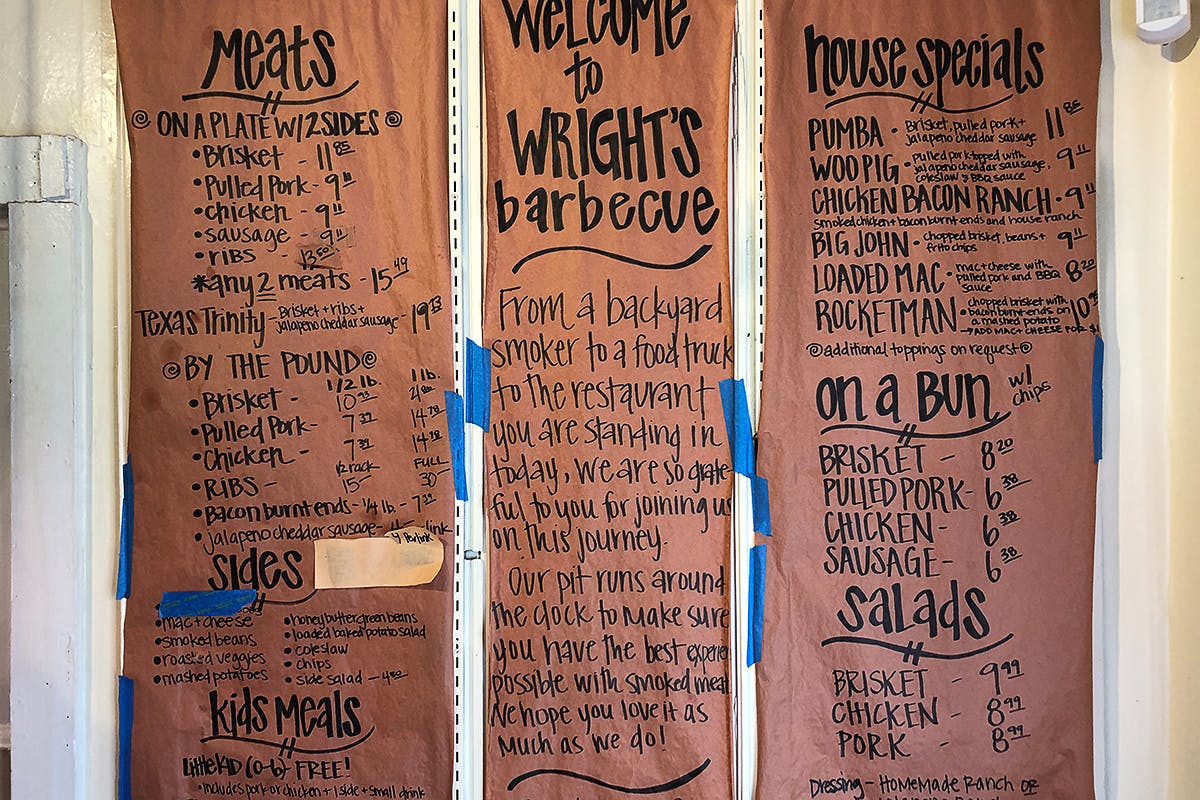 Meats
ON A PLATE W/ 2 SIDES
• Brisket - 11 85
• Pulled Pork - 9 11
• chicken - 9 11
• sausage - 9 11
• ribs - 13 50
*any 2 meats - 15 49
Texas Trinity - Brisket + ribs + jalapeno cheddar sausage - 19 13
BY THE POUND
1/2 lb. 1 lb.
• Brisket -
• Pulled Pork -
• Chicken -
1/2 rack FULL
• RIBS - 15 30
• Bacon burnt ends - 1/4 lb. -
• jalapeno cheddar sausage - link
4 Per link
sides
• mac + cheese
• smoked beans
• roasted veggies
• mashed potatoes
• honey butter green beans
• loaded baked potato salad
• coleslaw
• chips
• side salad -
kids Meals
Little KID (0-6) - FREE!
• includes pork or chicken + 1 side + small drink
WELCOME
to
WRIGHT'S
barbecue
From a backyard
smoker to a food truck
to the restaurant
you are standing in
today, we are so grate-
ful to you for joining us
on this journey.
Our pit runs around
the clock to make sure
you have the best experie
possible with smoked meat
We hope you love it as
much as we do!
house specials
PUMBA • Brisket, pulled pork + jalapeno cheddar sausage 11 85
WOO PIG • pulled pork topped with jalapeno cheddar sausage, coleslaw & BBQ sauce 9 11
CHICKEN BACON RANCH • 9 11
smoked chicken + bacon burnt ends and house ranch
BIG JOHN • chopped brisket, beans + frito chips 9 11
LOADED MAC • mac + cheese with pulled pork and BBQ sauce 8 20
ROCKETMAN • chopped brisket with bacon burnt ends on a mashed potato 10
→ ADD MAC + CHEESE FOR $1
additional toppings on request
on a Bun w/ chips
BRISKET - 8 20
PULLED PORK - 6 38
CHICKEN - 6 38
SAUSAGE - 6 38
salads
BRISKET - 9 99
CHICKEN - 8 99
PORK - 8 99
Dressing - Homemade Ranch or